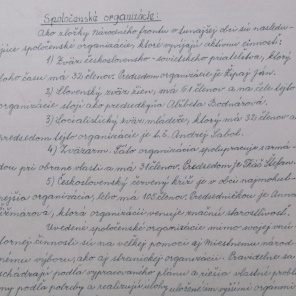 Spoločenské organizácie:
Ako zložky Národného frontu v tunajšej obci sú nasledu-
júce spoločenské organizácie, ktoré vyvíjajú aktívnu činnosť:
1) Zväz československo-sovietskeho priateľstva, ktorý
toho času má 32 členov. Predsedom organizácie je Ján.
2) Slovenský zväz žien, má 61 členov a na čele tejto
organizácie stojí ako predsedkyňa Alžbeta Bodnárová.
3) Socialistický zväz mládeže, ktorý má 35 členov a
predsedom tejto organizácie je Andrej Sabol.
4) Zväzarm. Táto organizácia spolupracuje s armá-
dou pri obrane vlasti a má členov. Predsedom je Štefan.
5) Československý červený kríž je v obci najmohut-
nejšia organizácia, lebo má 105 členov. Predsedníčkou je Anna
ktorá organizácii venuje značnú starostlivosť.
Uvedené spoločenské organizácie mimo svojej vnú-
tornej činnosti sú na veľkej pomoci aj Miestnemu národ-
nému výboru, ako aj straníckej organizácii. Pravidelne sa
schádzajú podľa vypracovaného plánu a riešia vlastné problé-
my podľa potreby a realizujú úlohy uložené im vyššími orgánmi